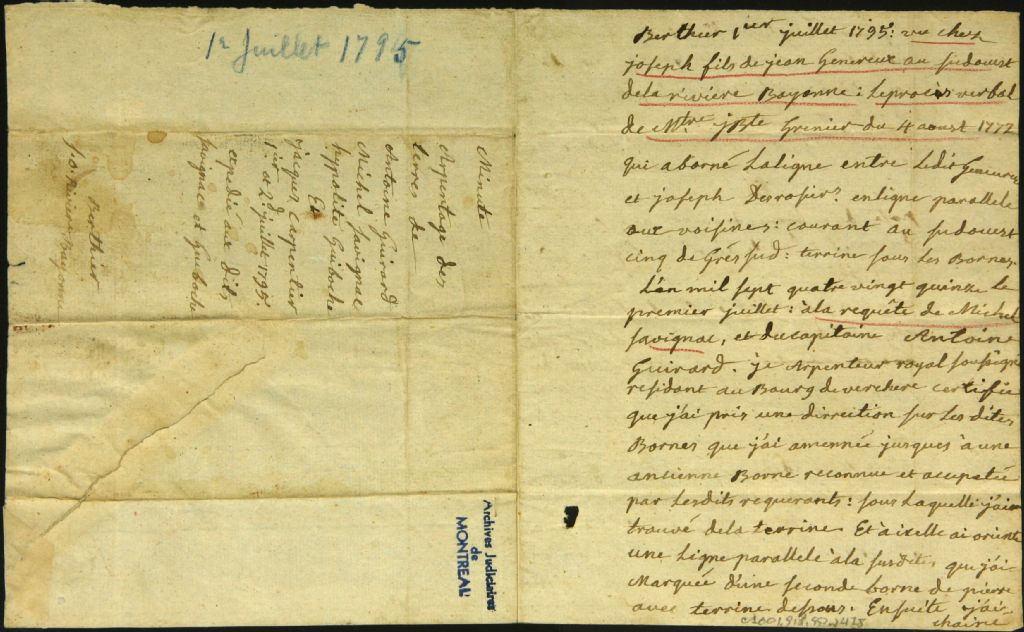 1r Juillet 1795
Minute
Arpentage des
terres de
Antoine Guirard
Michel Savignac
hypolite Guiboche
Et
jaiques Carpentier
1ier et 2e juillet 1795
expedié aux dits
Savignac et Guiboche
Berthier
s.o. Riviere Bayonne
Archives Judiciaires
de
MONTREAL
Berthier 1ier juillet 1795: vu chez
joseph fils de jean Genereux au sudouest
dela riviere Bayonne: Leprocès verbal
de Mtre jBte Grenier du 4 aoust 1772
qui aborné Laligne entre Ledit Genereux
et joseph Desrosiers enligne parallele
aux voisines: courant au sudouest
cinq degrés sud: terrine sous les Bornes.
L'an mil sept quatre vingt quinze le
premier juillet: àla requête de Michel
savignac, et ducapitaine Antoine
Guirard. je Arpenteur royal soussigné
residant au Bourg de verchere certifie
que j'ai pris une dirrection sur Les dites
Bornes que j'ai amennée jusques à une
ancienne Borne reconnue et aceptée
par Lesdits requerants: sous Laquelle j'ai
trouvé dela terrine. Et à icelle ai orienté
une Ligne parallele àla susdite, que j'ai
Marquée d'une seconde borne de pierre
avec terrine dessous. Ensuite j'ai
chainé